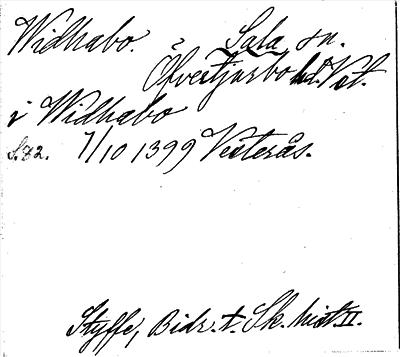 Widhabo. Sala sn.
Öfvertjurbo hd. Vst.
i Widhabo
S. 82. 7/10 1399 Vesterås.
Styffe, Bidr. t. Sk. hist. II.